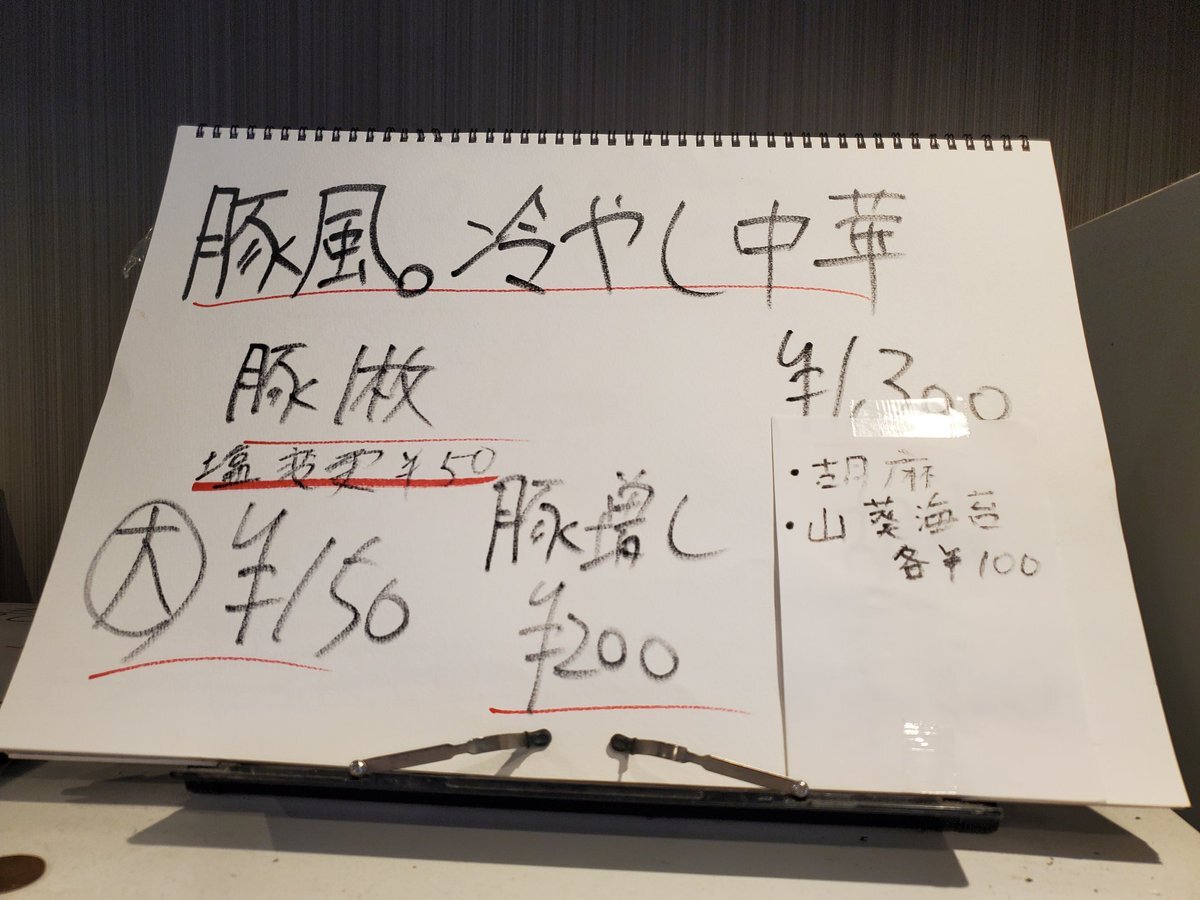 豚風。冷やし中華
豚1枚
¥1,300
塩変更¥50
大 ¥150
豚増し
¥200
・胡麻
・山葵海苔
各¥100